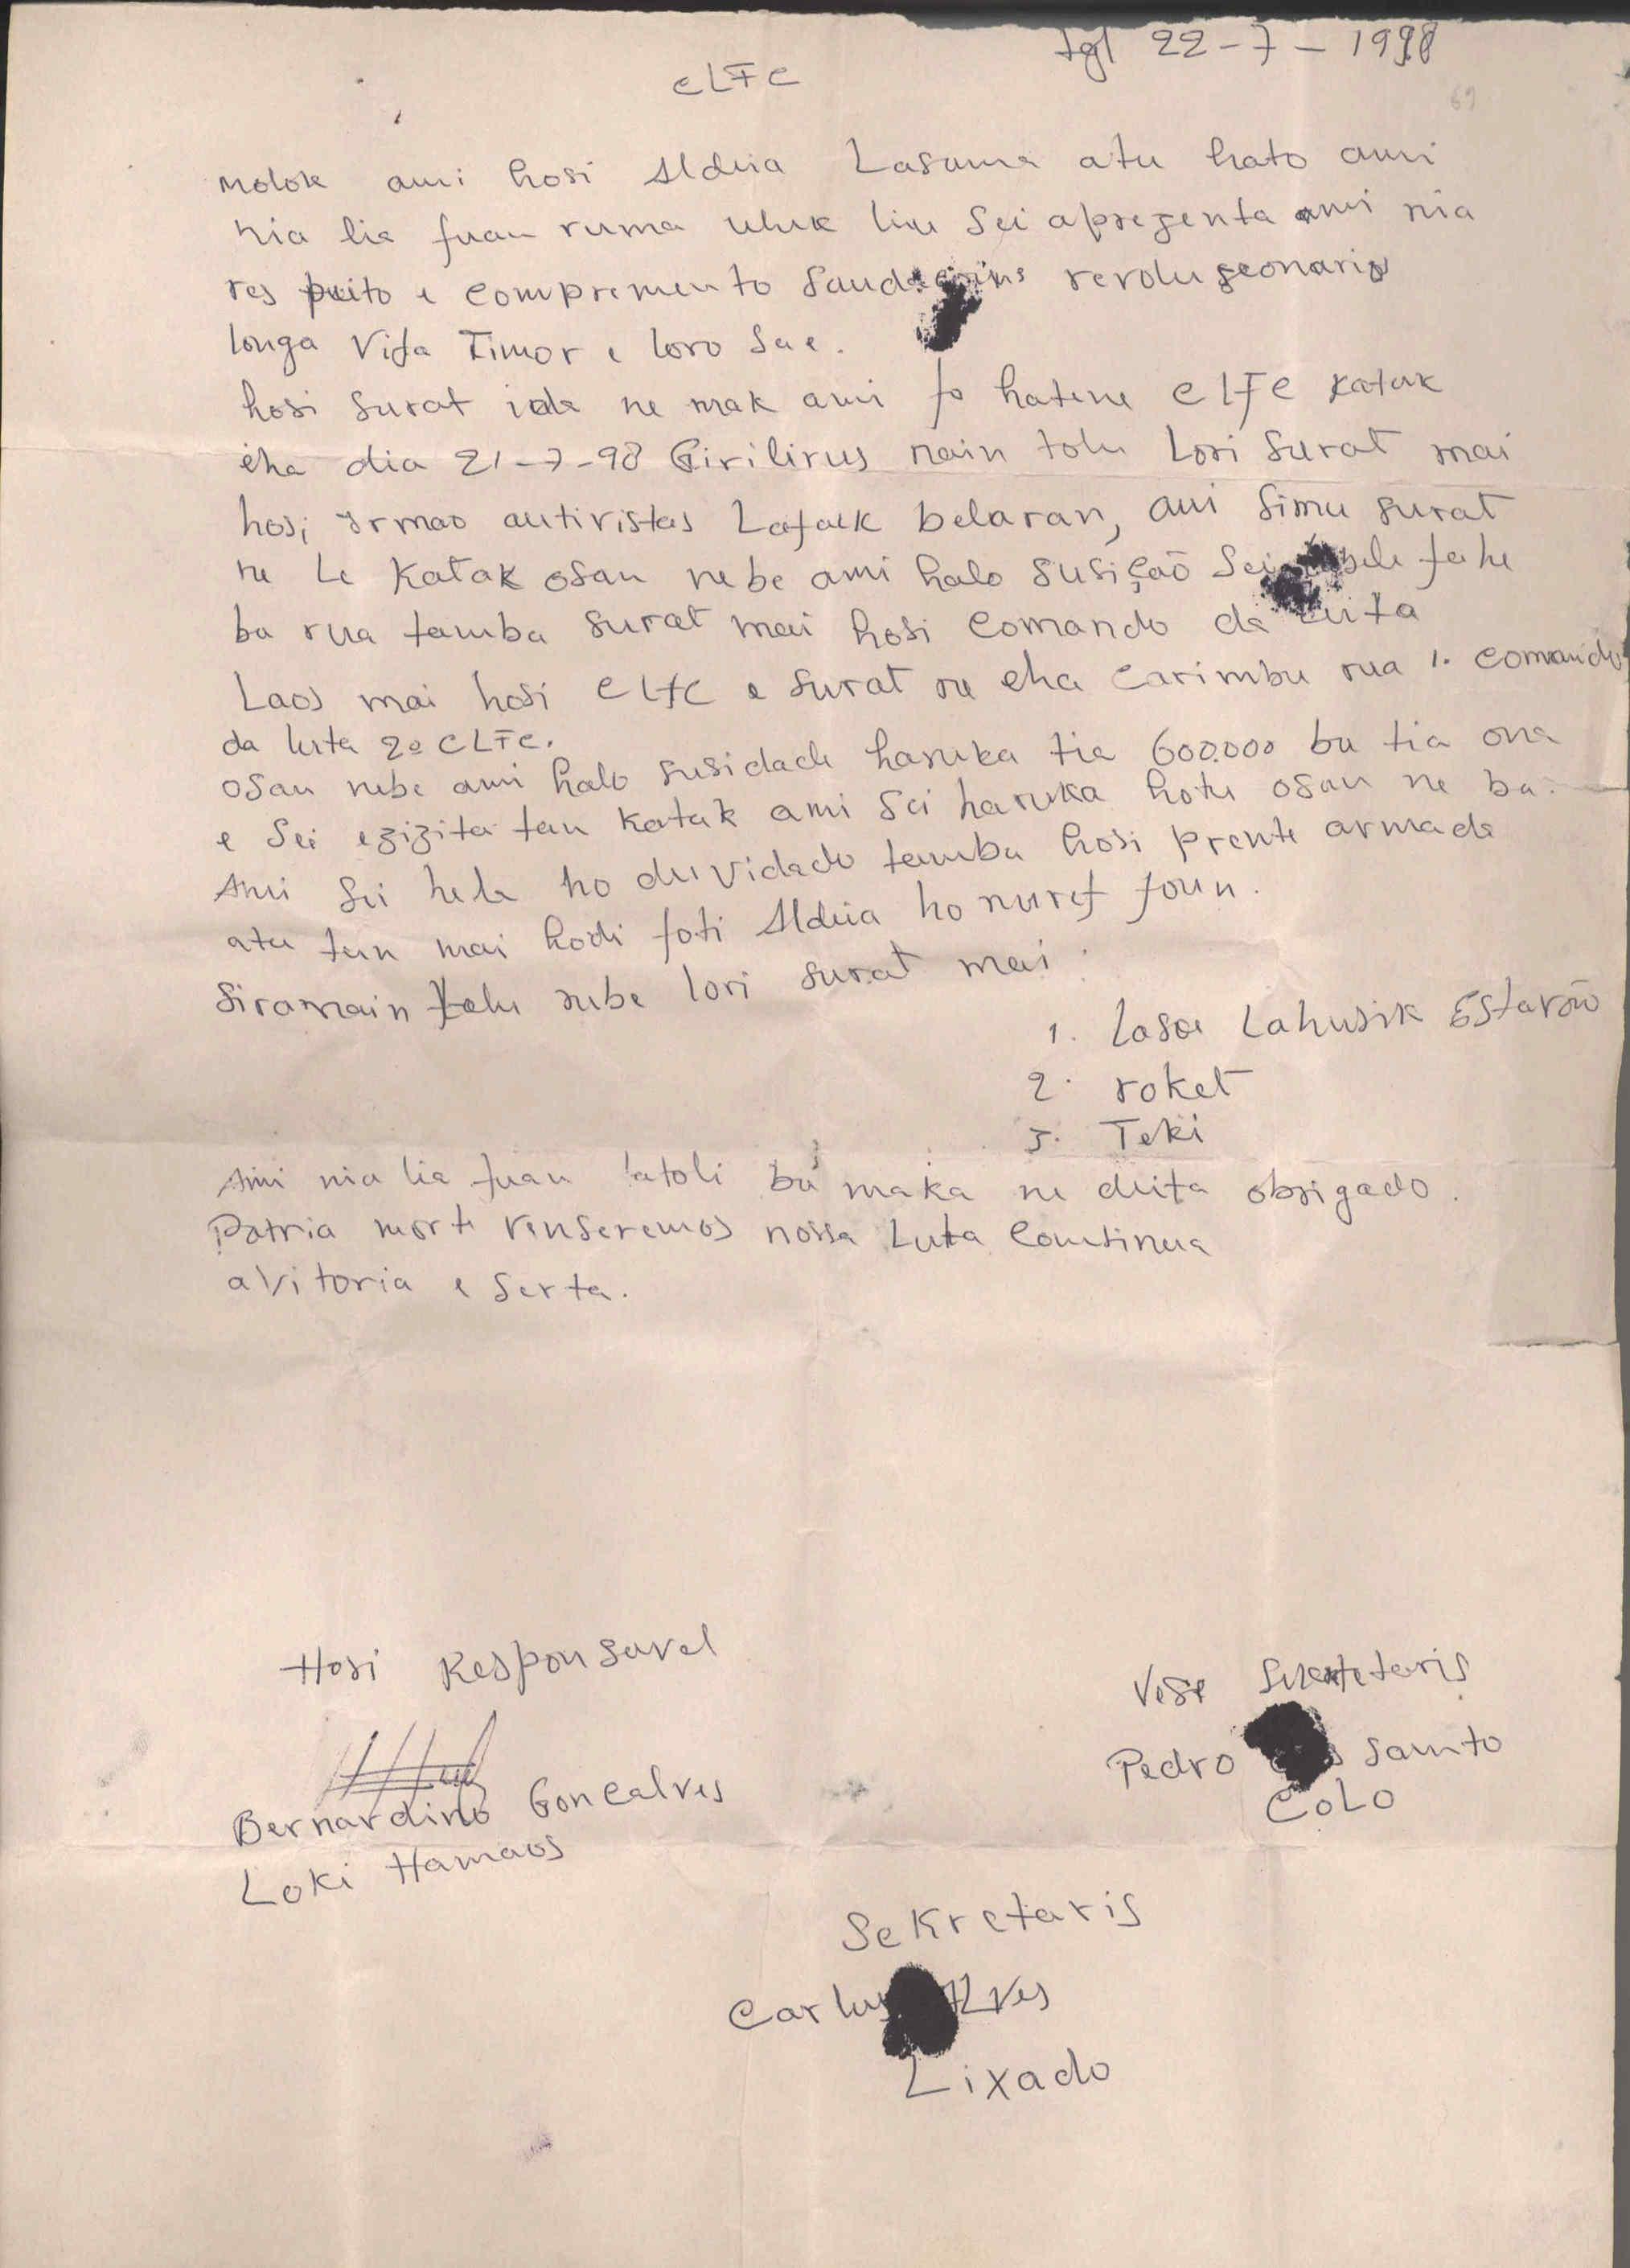 tgl 22-7-1998
CLFC
69
molok ami hosi Aldeia Lasama atu hato ami
nia lia fuan ruma uluk liu sei aprezenta ami nia
res peito e compremento revoluseonario
longa Vida Timor e loro Sae.
hosi surat ida ne mak ami fo hatene CLFC katak
eha dia 21-7-98 Girilirus nain tolu Lori surat mai
hosi irmao autivistas Lafaek belaran, ami simu surat
ne Le Katak osan nebe ami halo susição Sei bele fahe
ba rua tamba surat mai hosi Comando da Luta
Laos mai hosi CLFC e surat ne eha Carimbu rua 1. Comando
da luta 2o CLFC.
osan nebe ami halo susidade haruka tia 600.000 ba tia ona
e sei ezizita tan katak ami sei haruka hotu osan ne ba.
Ami sei hela ho duvidado tamba hosi prente armada
atu tun mai hodi foti Aldeia ho nuref foun.
siramain tolu nebe lori surat mai :
1. Lasa Lahusik Estavão
2. roket
3. Teki
Ami nia lia fuan latoli ba maka ne deita obrigado.
Patria morte venseremos nossa Luta Continua
a Vitoria e serta.
Hosi Responsavel
Vese
Pedro Santo
CoLo
Bernardino Goncalves
Loki Hamaos
Sekretaris
Carlus Alves
Lixado